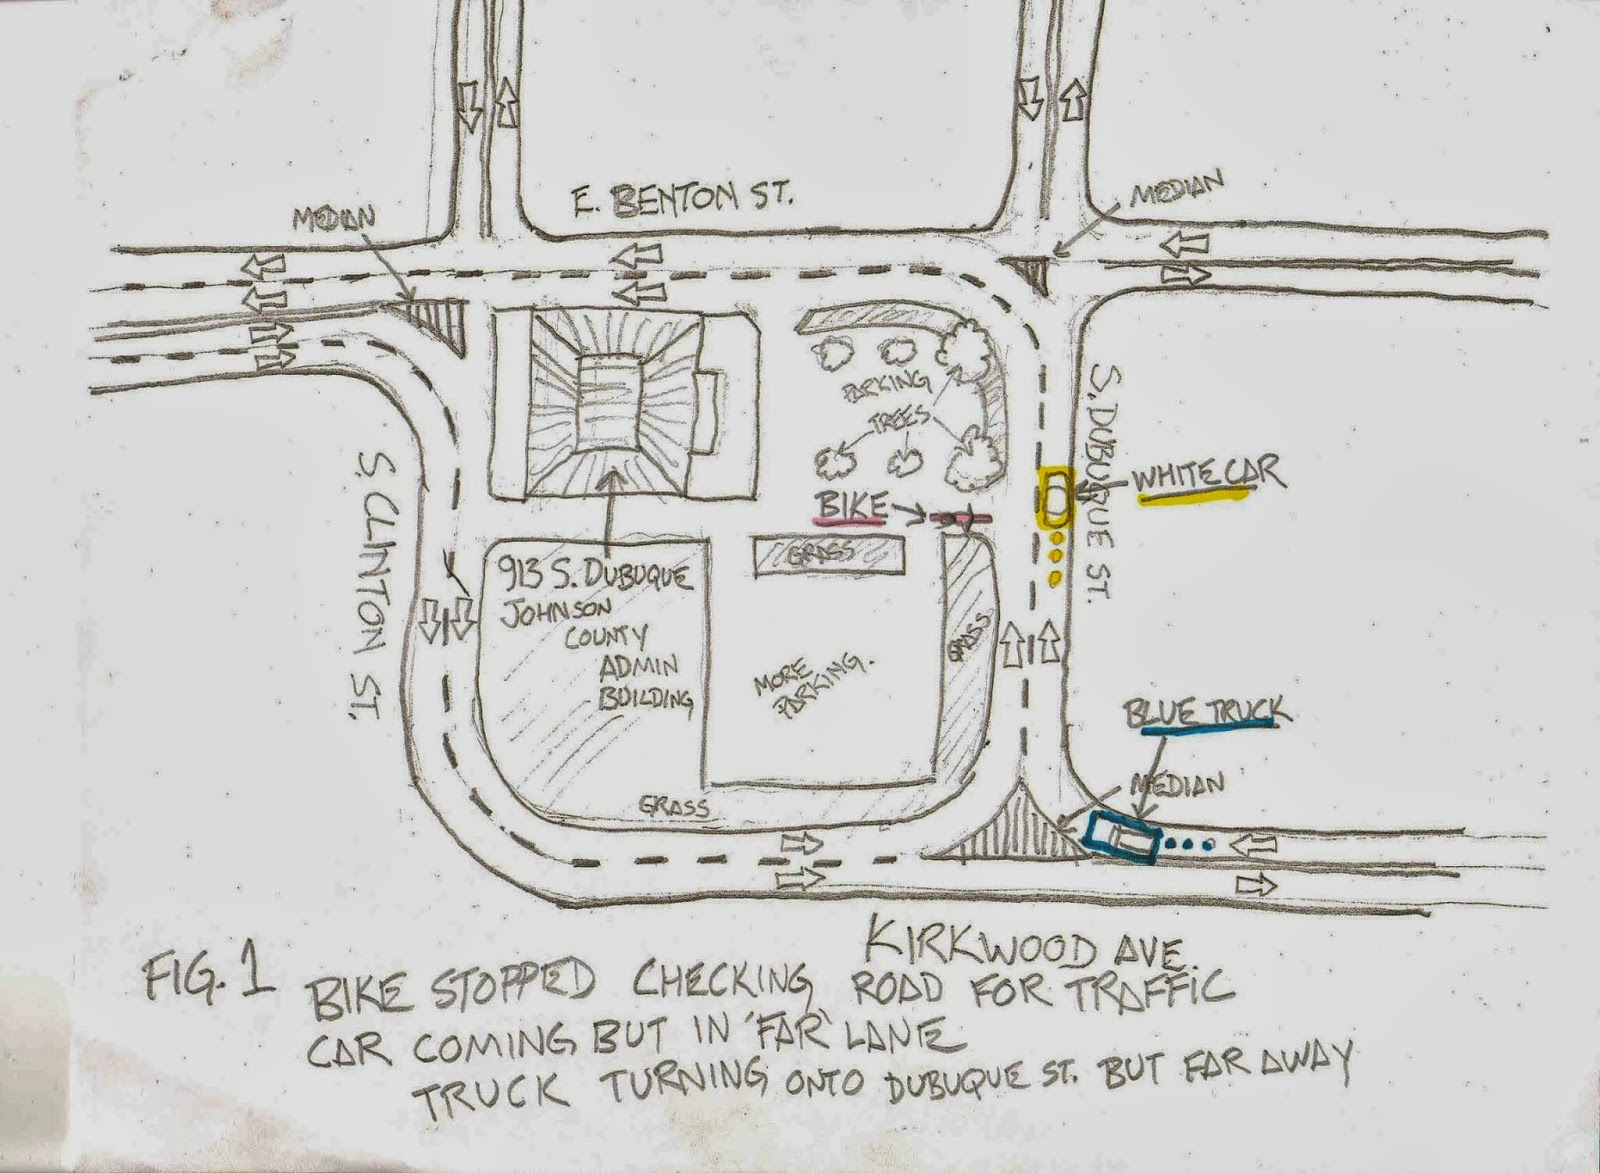 E. BENTON ST.
MEDIAN
MEDIAN
PARKING
TREES
S. DUBUQUE ST.
WHITE CAR
BIKE
GRASS
913 S. DUBUQUE
JOHNSON
COUNTY
ADMIN
BUILDING
S. CLINTON ST.
MORE
PARKING.
GRASS
BLUE TRUCK
MEDIAN
GRASS
KIRKWOOD AVE.
FIG. 1
BIKE STOPPED CHECKING ROAD FOR TRAFFIC
CAR COMING BUT IN 'FAR' LANE
TRUCK TURNING ONTO DUBUQUE ST. BUT FAR AWAY